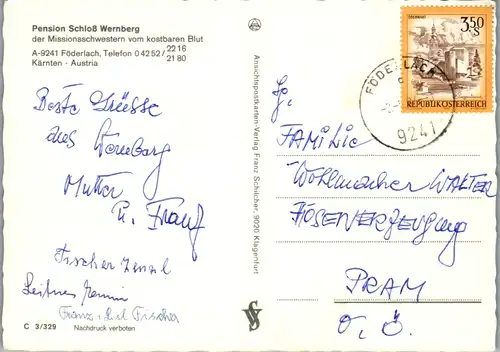 Pension Schloß Wernberg
der Missionsschwestern vom kostbaren Blut
A-9241 Föderlach, Telefon 0 42 52 / 22 16
21 80
Kärnten · Austria
Beste Grüsse
aus Wernberg
Mutter
u. Franz
Fischer Zenzl
Franz Fischer
C 3/329
Nachdruck verboten
Ansichtspostkarten-Verlag Franz Schilcher, 9020 Klagenfurt
3.50
S
REPUBLIK ÖSTERREICH
FÖDERLACH
9241
FAMILIE
Wohlmacher WALTER
HOSENERZEUGUNG
PRAM
O.Ö.